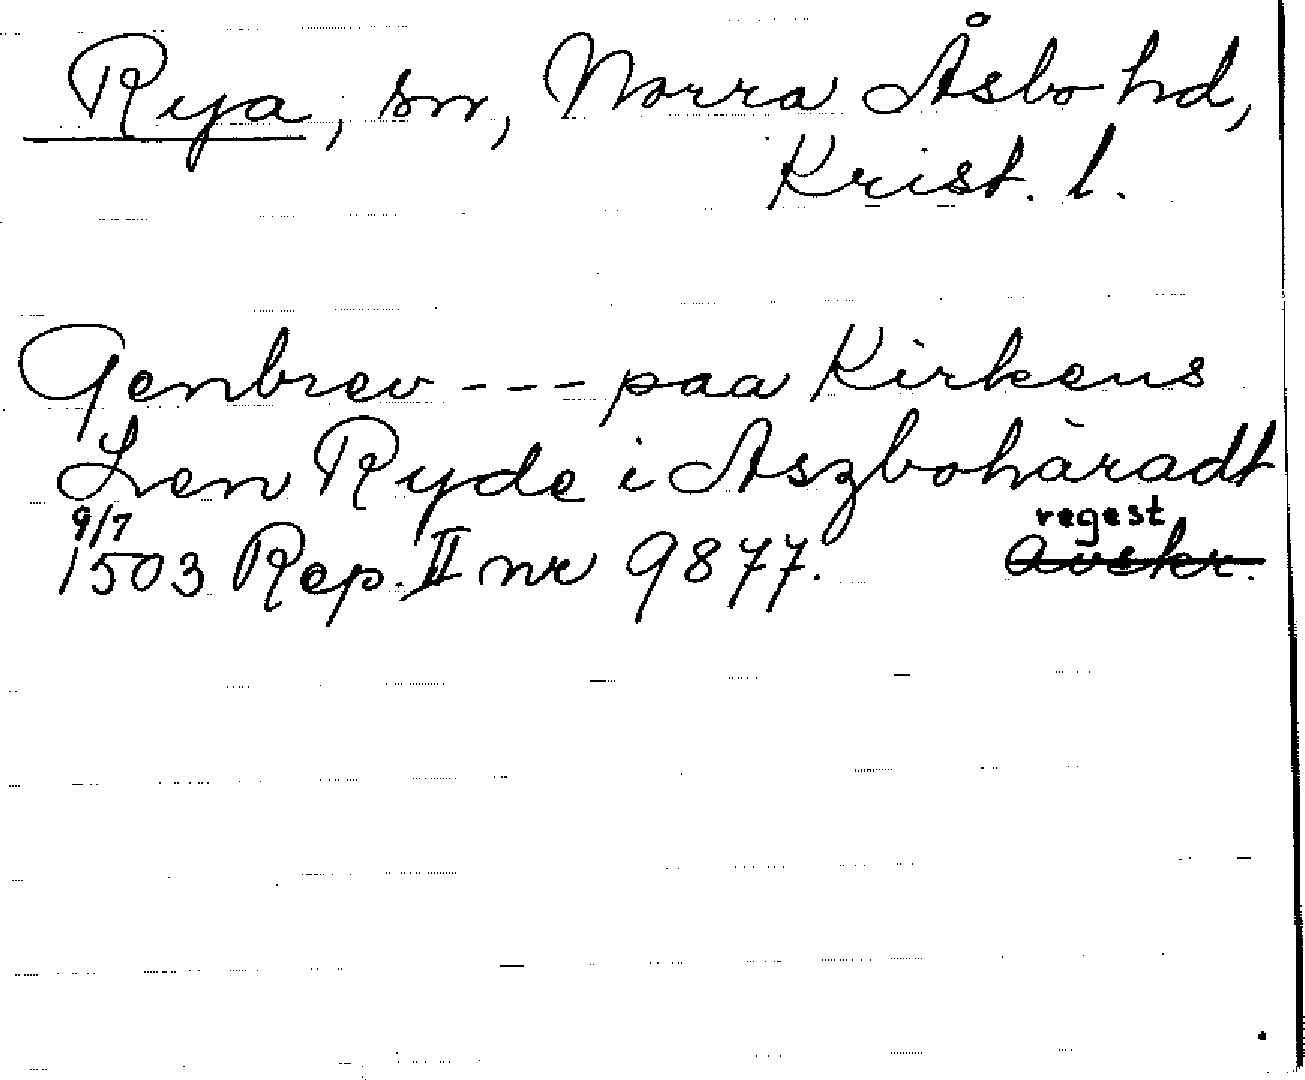 Rya, sn, Norra Åsbo hd,
Krist. l.
Genbrev --- paa Kirkens
Len Ryde i Aszbohäradt
9/7 regest
1503 Rep. II nr 9877. avskr.